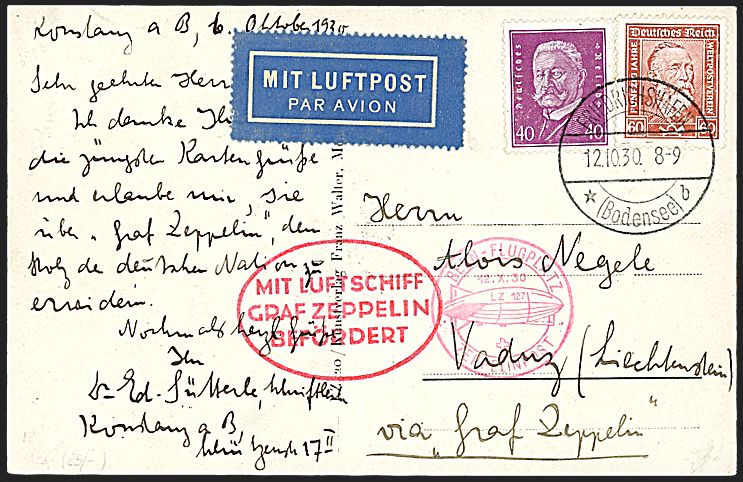 Konstanz a B, 6. Oktober 1930
Sehr geehrter Herr
Ich danke Ih
die jüngsten Kartengrüße
und erlaube mir, Sie
über „Graf Zeppelin", den
Stolz der deutschen Nation zu
erwidern.
Nochmals herzl. Grüße
Ihr
Dr Ed. Sütterle, Schriftleit
Konstanz a B,
17 II
MIT LUFTPOST
PAR AVION
Deutsches Reich
40 40
Deutsches Reich
FÜNFZIG JAHRE WELTPOSTVEREIN
60
FRIEDRICHSHAFEN
12.10.30. 8-9
(Bodensee) b
MIT LUFTSCHIFF
GRAF ZEPPELIN
BEFÖRDERT
FLUGPLATZ
12.X.30
LZ 127
ZEPPELINPOST
Kunstverlag Franz Walter,
Herrn
Alois Negele
Vaduz (Liechtenstein)
via „Graf Zeppelin"